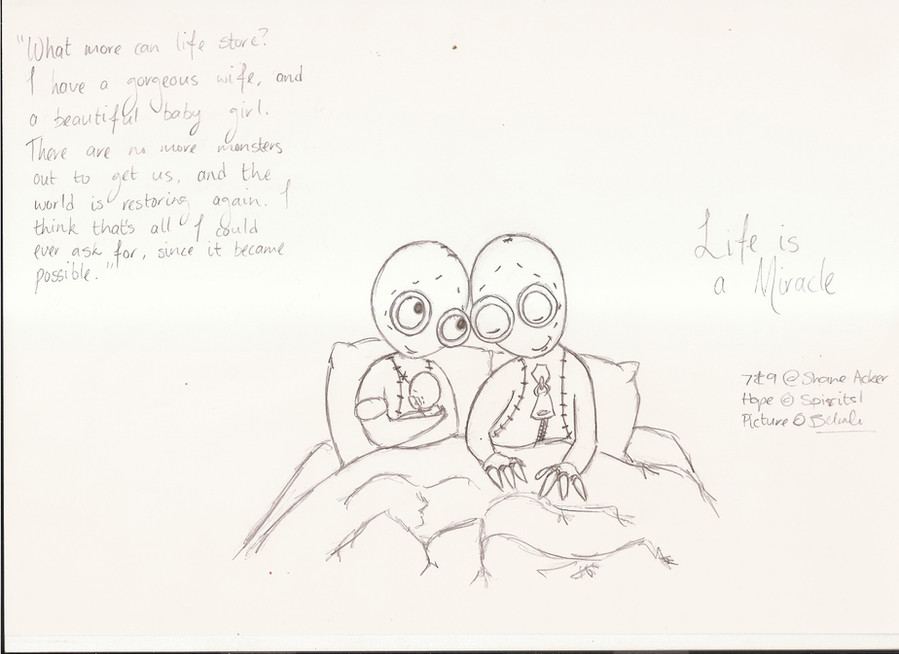 "What more can life store?
I have a gorgeous wife, and
a beautiful baby girl.
There are no more monsters
out to get us, and the
world is restoring again. I
think that's all I could
ever ask for, since it became
possible."
Life is
a Miracle
7&9 @ Shane Acker
Hope ©
Picture ©